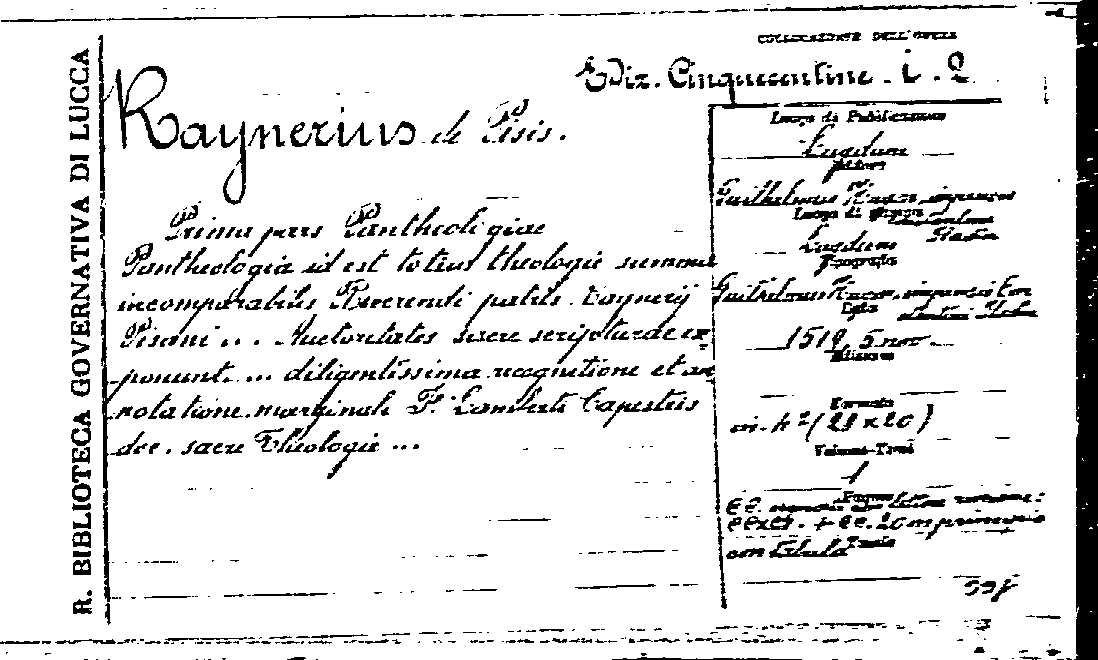 R. BIBLIOTECA GOVERNATIVA DI LUCCA
COLLOCAZIONE DELL'OPERA
Ediz. Cinquecentine. i. 2
Raynerius de Pisis.
Prima pars Pantheologiae
Pantheologia id est totius theologie summa
incomparabilis Reverendi patris Raynerij
Pisani ... Auctoritates sacre scripturae ex-
ponunt ... diligentissima recognitione et an
notatione marginale F. Lamberti Capestris
doc. sacre Theologie ...
Luogo di Pubblicazione
Lugdum
Editore
Guilhelmus impensis
Luogo di stampa
Lugdum
Tipografo
Guilhelmus impensis
Data
1519, 5 nov.
Edizione
Formato
in-4° (29 x 20)
Volume-Tomo
1
Pagine
+ cc. 20 in principio
con tabula
Tavole